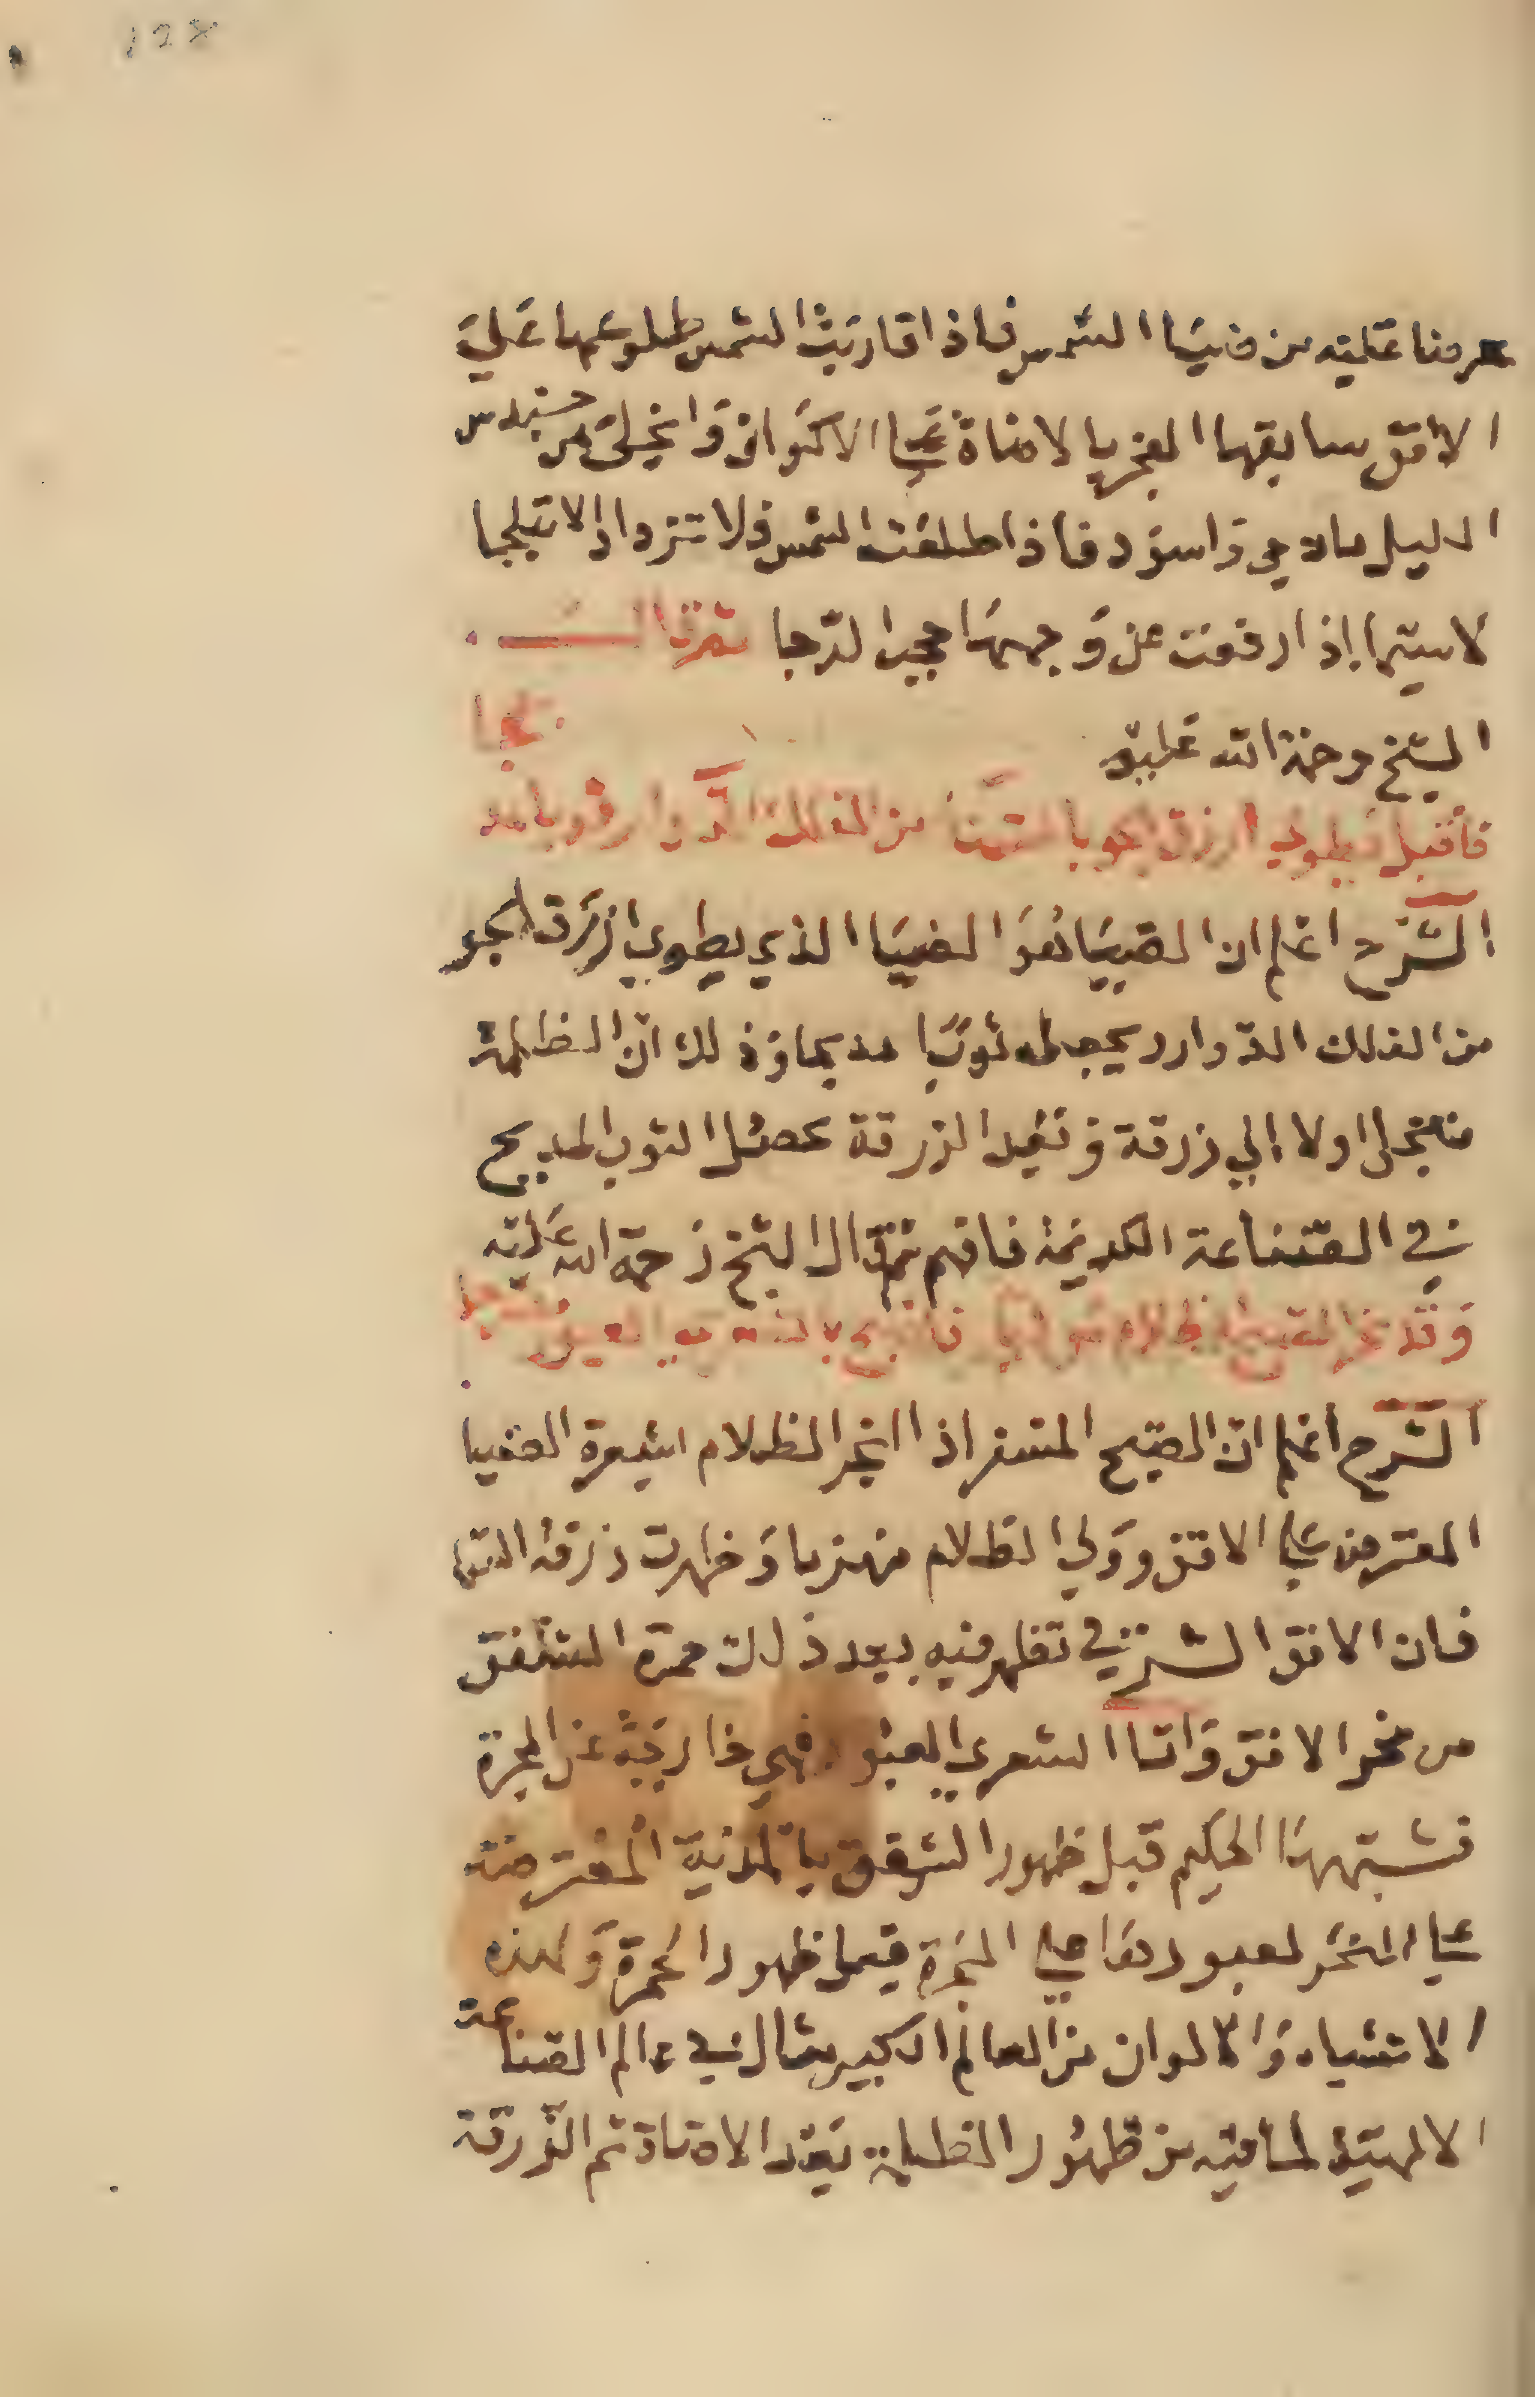 ١٢٨
عرضنا عليه من ضيا الشمس فاذا قاربت الشمس طلوعها علي
الافق سابقها الفجر بالاضاة علي الاكوان وانجلي من حندس
الليل ما دجي واسود فاذا طلعت الشمس فلا تزداد الا تبلجا
لاسيما إذا رفعت عن وجهها حجب الدجا ثم قال
الشيخ رحمة الله عليه
فاقبل يطوي ازرق الجو بالضيا من الفلك الدوار ثوبا مدبجا
الشرح اعلم ان الضيا هو الضيا الذي يطوي ازرق الجو
من الفلك الدوار ويجعله ثوبا مدبجا وذلك ان الظلمة
تنجلي اولا الي زرقة وبعد الزرقة يحصل الثوب المدبج
في الصناعة الكريمة فافهم ثم قال الشيخ رحمة الله عليه
وقد نحر الصبح الظلام
الشرح اعلم ان الصبح المسفر اذا نحر الظلام اشعة الضيا
المعترض علي الافق وولي الظلام منهزما وظهرت زرقة السما
فان الافق الشرقي تظهر فيه بعد ذلك حمرة الشفق
من نحر الافق واما الشعري العبور فهي خارجة عن المجرة
فشبهها الحكيم قبل ظهور الشفق بالمدية المعترضة
علي النحر لعبورها علي المجرة قبل ظهور الحمرة ولهذه
الاشياء والالوان من العالم الكبير مثال في عالم الصناعة
الالهية لما فيه من ظهور الظلمة بعد الاضاة ثم الزرقة